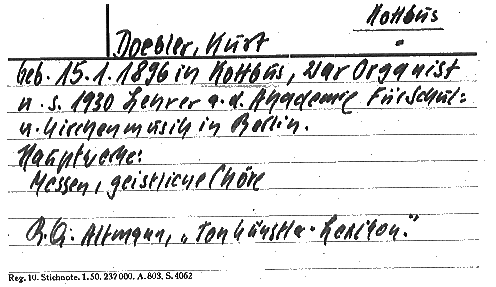 Kottbus
Doebler, Kurt
Geb. 15.1.1896 in Kottbus, war Organist
u. s. 1930 Lehrer a. d. Akademie für Schul=
u. Kirchenmusik in Berlin.
Hauptwerke:
Messen, geistliche Chöre
Altmann, „Tonkünstler-Lexikon."
Reg. 10. Stichnote. 1. 50. 232000. A. 803. S. 4062